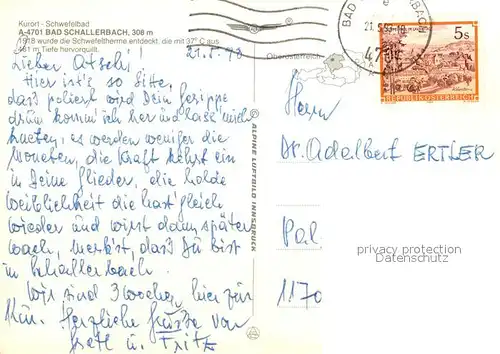 Kurort - Schwefelbad
A-4701 BAD SCHALLERBACH, 308 m
1918 wurde die Schwefeltherme entdeckt, die mit 37° C aus
481 m Tiefe hervorquillt.
21.5.90
Lieber Atschi!
Hier ist's so Sitte,
dass poliert wird Dein Gerippe
drum komm ich her und lass mich
kneten, es werden weniger die
Moneten, die Kraft kehrt ein
in Deine Glieder, die holde
Weiblichkeit die hast gleich
wieder und wirst dann später
wach, merkst, dass Du bist
in Schallerbach.
Wir sind 3 Wochen hier zur
Kur. Herzliche Grüsse von
Gretl u. Fritz
© ALPINE LUFTBILD INNSBRUCK
BAD
21.5.90-10
4701
Oberösterreich
5s
REPUBLIK ÖSTERREICH
Herrn
Dr. Adalbert ERTLER
1170
privacy protection
Datenschutz